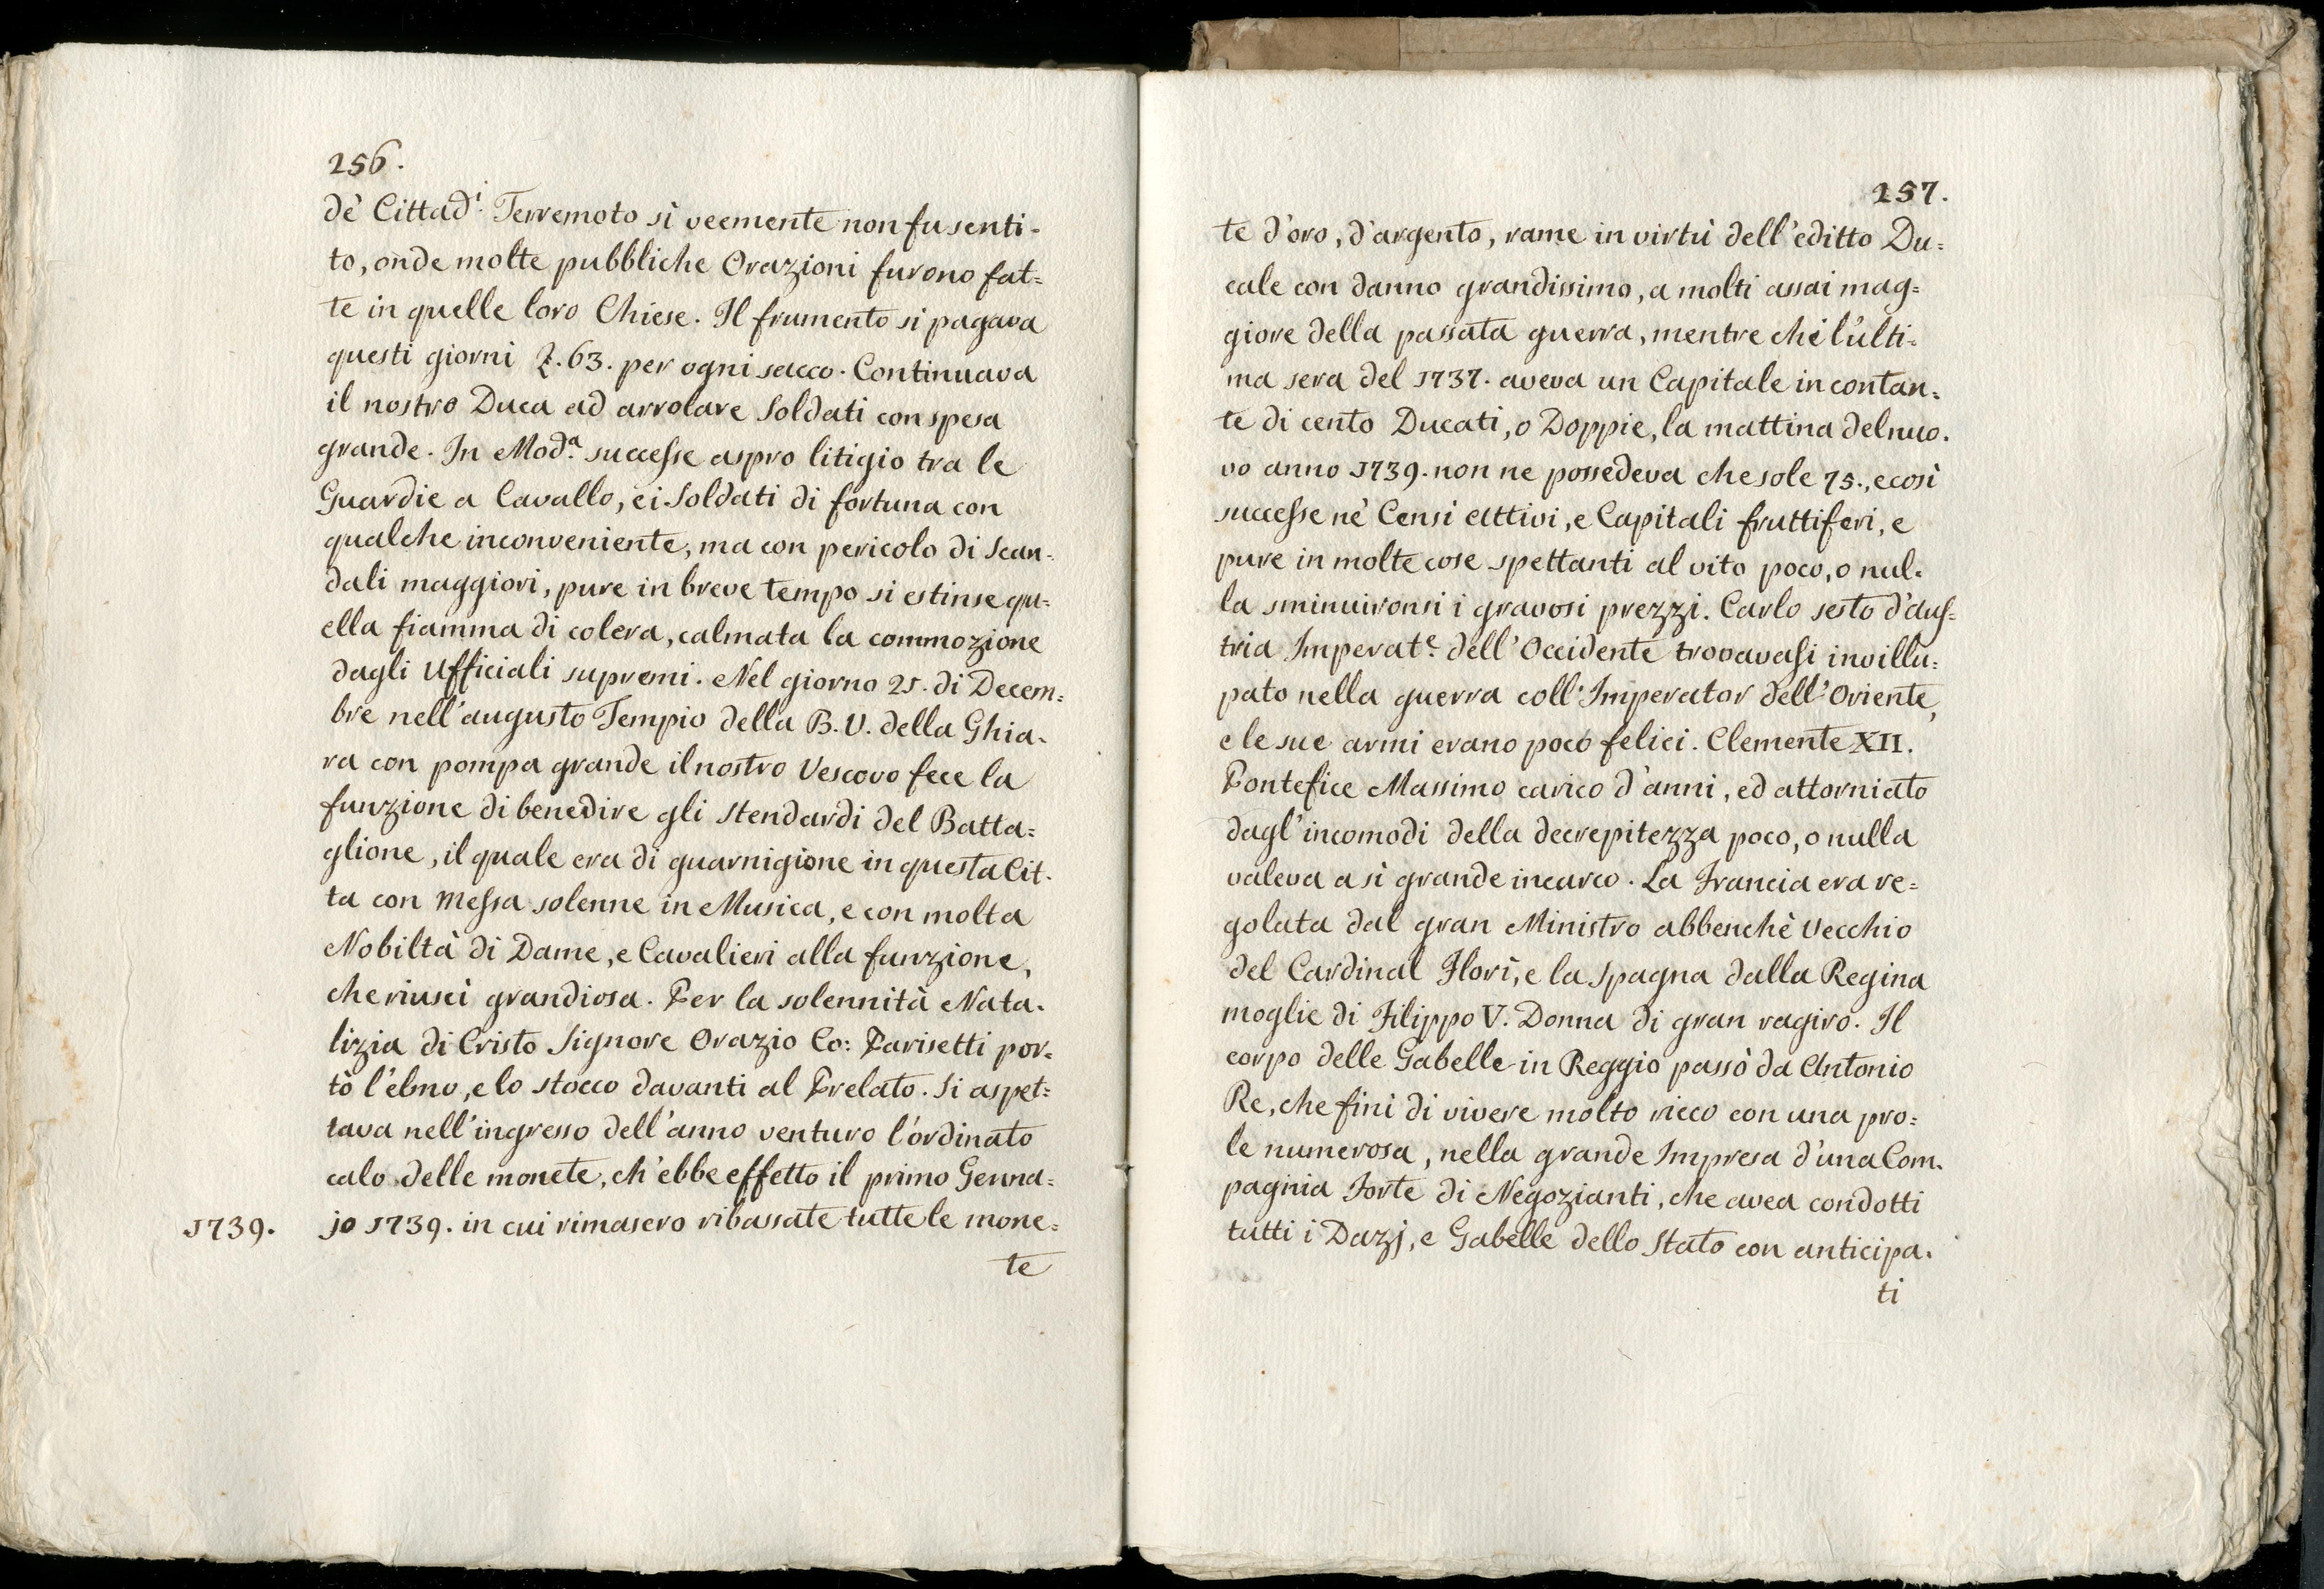 256.
de' Cittad.i Terremoto sì veemente non fu senti-
to, onde molte pubbliche Orazioni furono fat=
te in quelle loro Chiese. Il frumento si pagava
questi giorni £. 63. per ogni sacco. Continuava
il nostro Duca ad arrolare Soldati con spesa
grande. In Mod.a successe aspro litigio tra le
Guardie a Cavallo, e i Soldati di fortuna con
qualche inconveniente, ma con pericolo di Scan-
dali maggiori, pure in breve tempo si estinse qu=
ella fiamma di colera, calmata la commozione
dagli Ufficiali supremi. Nel giorno 25. di Decem=
bre nell'augusto Tempio della B. V. della Ghia-
ra con pompa grande il nostro Vescovo fece la
funzione di benedire gli Stendardi del Batta=
glione, il quale era di guarnigione in questa Cit-
ta con Messa solenne in Musica, e con molta
Nobiltà di Dame, e Cavalieri alla funzione,
che riuscì grandiosa. Per la solennità Nata-
lizia di Cristo Signore Orazio Co: Parisetti por-
tò l'elmo, e lo stocco davanti al Prelato. Si aspet=
tava nell'ingresso dell'anno venturo l'ordinato
calo delle monete, ch'ebbe effetto il primo Genna=
1739. jo 1739. in cui rimasero ribassate tutte le mone=
te
257.
te d'oro, d'argento, rame in virtù dell'editto Du=
cale con danno grandissimo, a molti assai mag=
giore della passata guerra, mentre chi l'ulti-
ma sera del 1737. aveva un Capitale in contan-
te di cento Ducati, o Doppie, la mattina del nuo-
vo anno 1739. non ne possedeva che sole 75., e così
successe nè Censi attivi, e Capitali fruttiferi, e
pure in molte cose spettanti al vito poco, o nul-
la sminuironsi i gravosi prezzi. Carlo sesto d'Aus=
tria Imperat.e dell'Occidente trovavasi invillu=
pato nella guerra coll'Imperator dell'Oriente,
e le sue armi erano poco felici. Clemente XII.
Pontefice Massimo carico d'anni, ed attorniato
dagl'incomodi della decrepitezza poco, o nulla
valeva a sì grande incarco. La Francia era re=
golata dal gran Ministro abbenchè Vecchio
del Cardinal Flori, e la Spagna dalla Regina
moglie di Filippo V. Donna di gran ragiro. Il
corpo delle Gabelle in Reggio passò da Antonio
Re, che finì di vivere molto ricco con una pro=
le numerosa, nella grande Impresa d'una Com-
pagnia Forte di Negozianti, che avea condotti
tutti i Dazj, e Gabelle dello Stato con anticipa-
ti